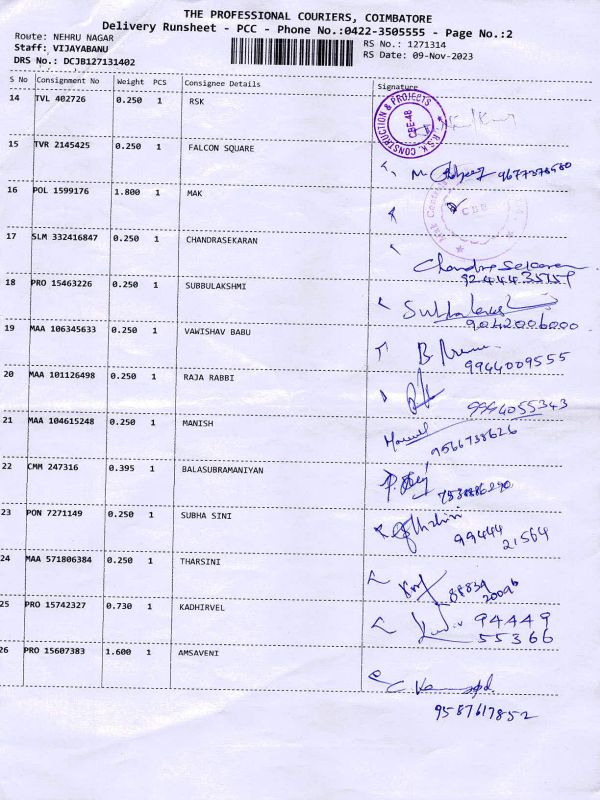 THE PROFESSIONAL COURIERS, COIMBATORE
Delivery Runsheet - PCC - Phone No.:0422-3505555 - Page No.:2
Route: NEHRU NAGAR
RS No.: 1271314
Staff: VIJAYABANU
RS Date: 09-Nov-2023
DRS No.: DCJB127131402
S No Consignment No Weight PCS Consignee Details Signature
14 TVL 402726 0.250 1 RSK
R.S.K. CONSTRUCTION & PROJECTS
CBE-48
15 TVR 2145425 0.250 1 FALCON SQUARE
16 POL 1599176 1.800 1 MAK
CBE
17 SLM 332416847 0.250 1 CHANDRASEKARAN
Chandra Sekaran
18 PRO 15463226 0.250 1 SUBBULAKSHMI
9042006000
19 MAA 106345633 0.250 1 VAWISHAV BABU
9944009555
20 MAA 101126498 0.250 1 RAJA RABBI
9994055343
21 MAA 104615248 0.250 1 MANISH
9566738626
22 CMM 247316 0.395 1 BALASUBRAMANIYAN
23 PON 7271149 0.250 1 SUBHA SINI
99444
21564
24 MAA 571806384 0.250 1 THARSINI
88839
20096
25 PRO 15742327 0.730 1 KADHIRVEL
94449
55366
26 PRO 15607383 1.600 1 AMSAVENI
9587617852